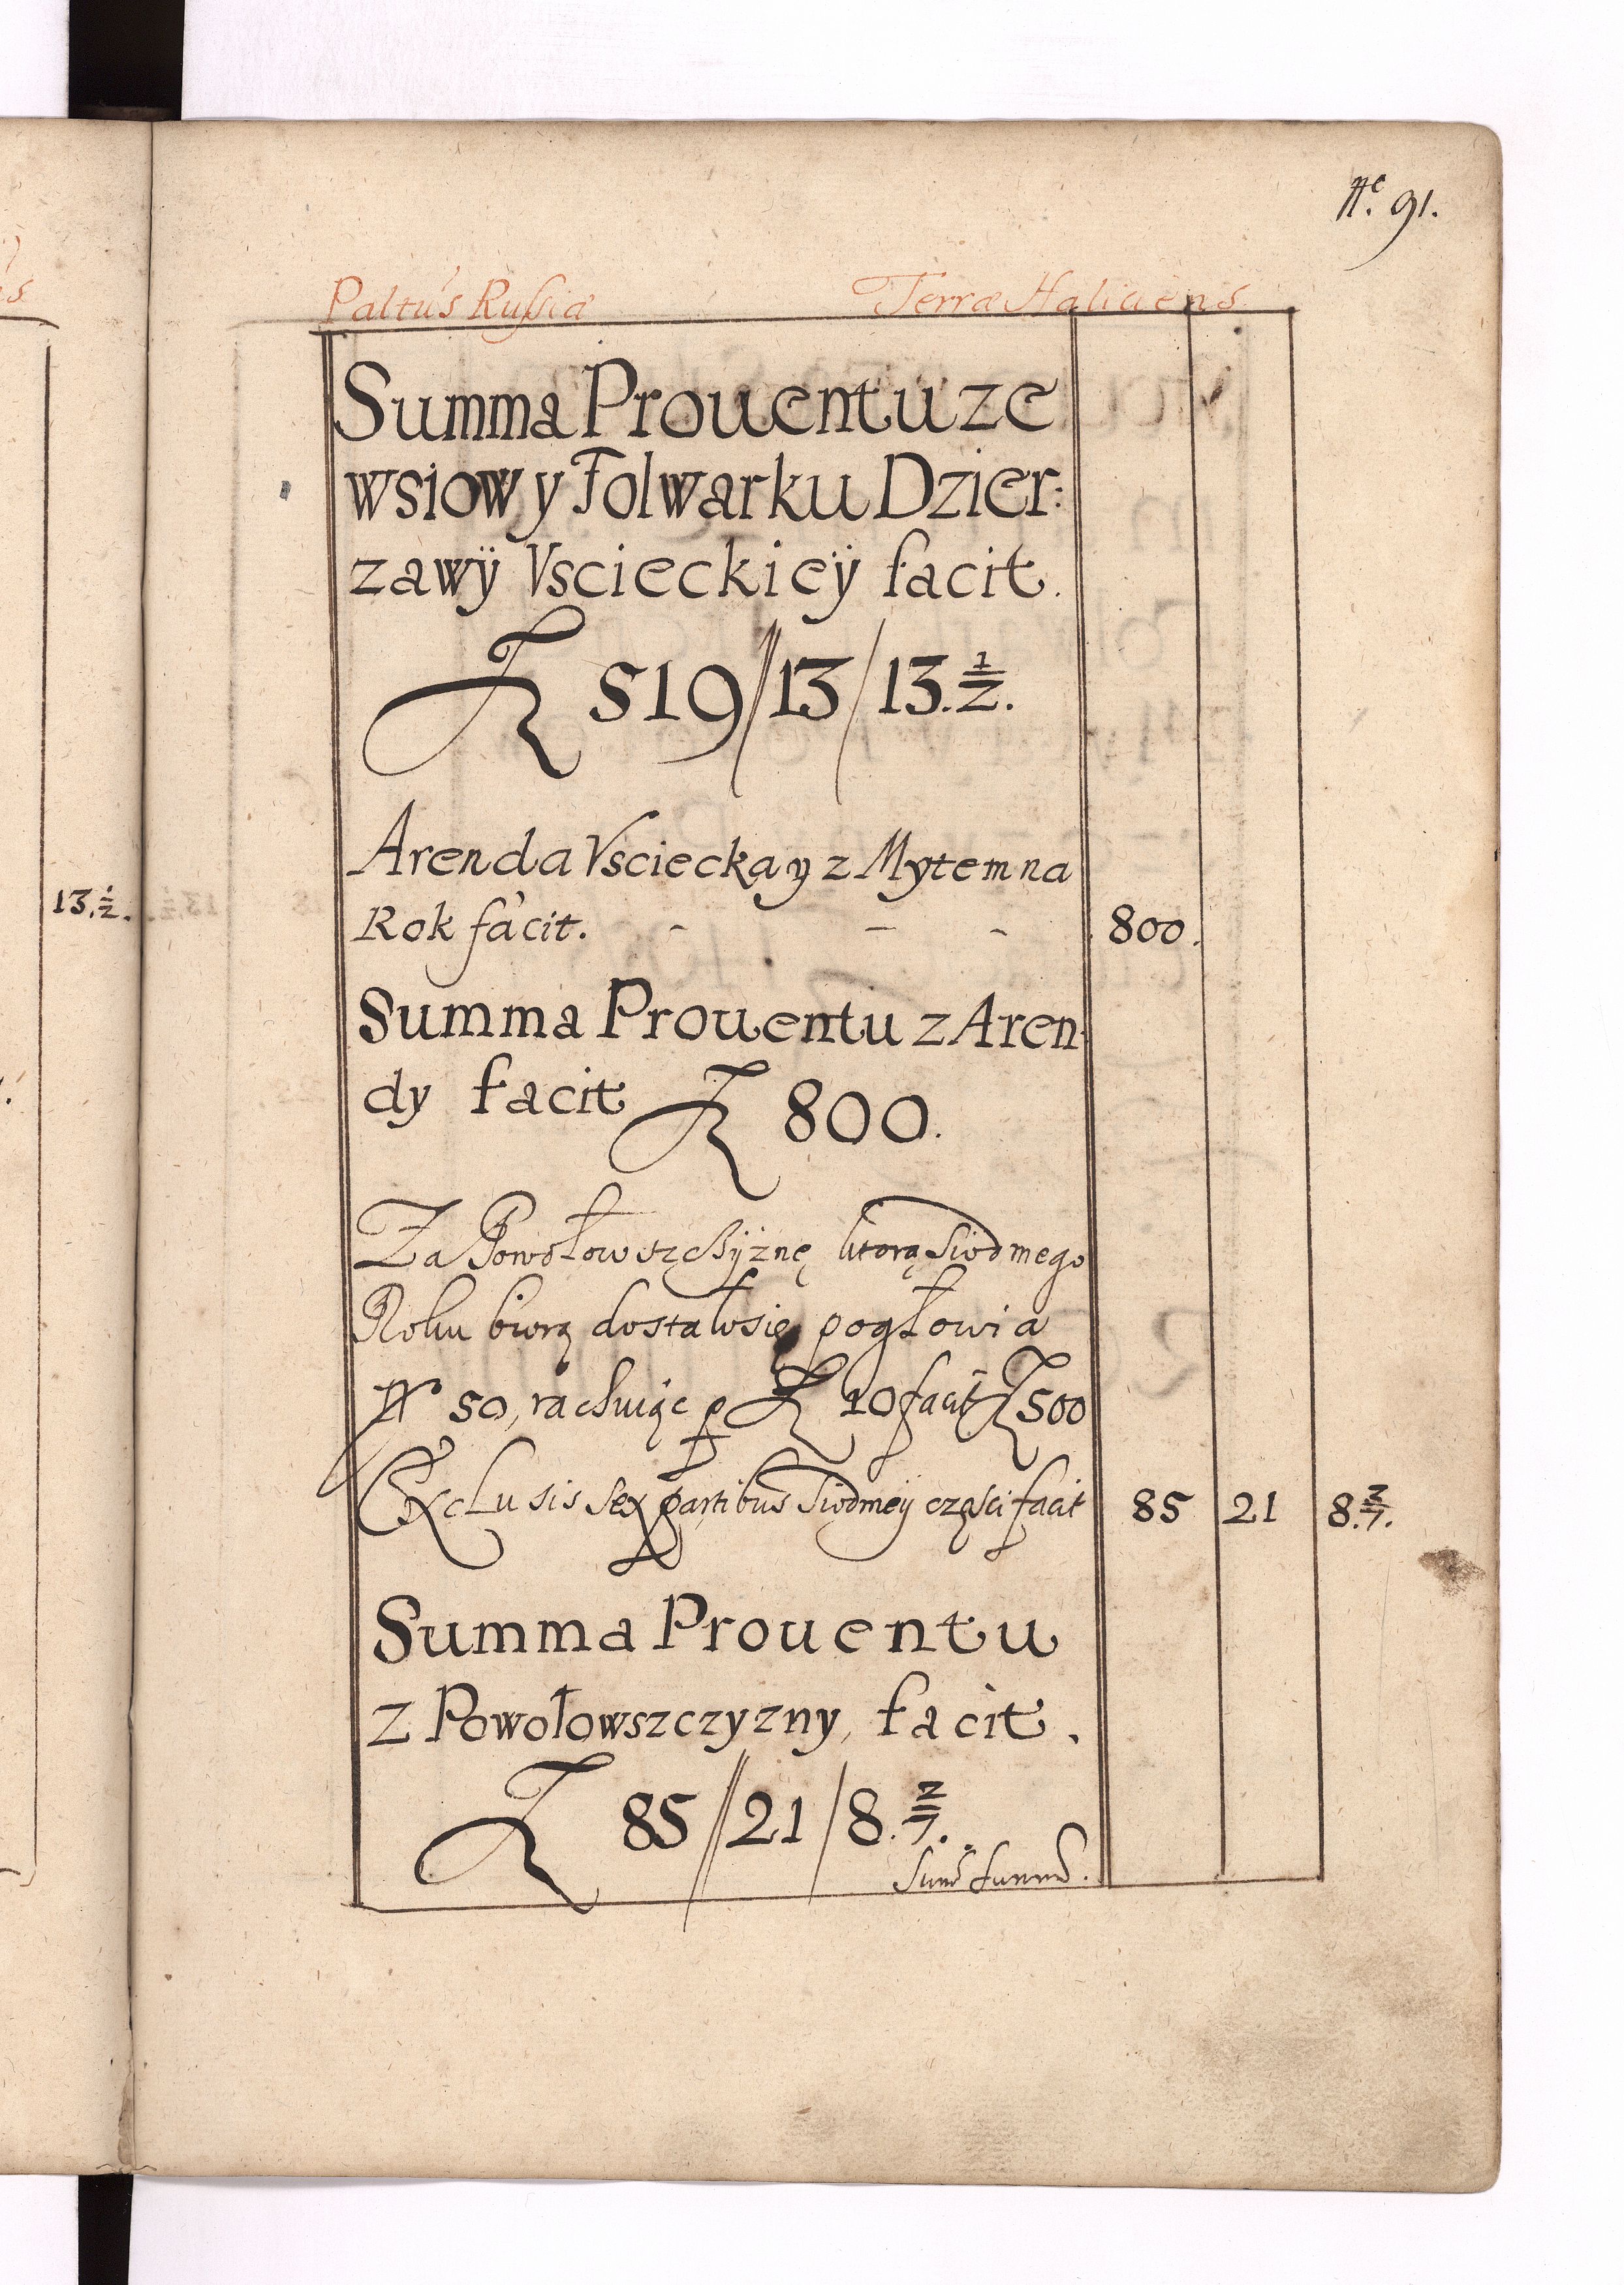 Nr. 91.
Paltus Russiæ Terræ Haliciens
Summa Prouentu ze
wsiow y Folwarku Dzier:
zawÿ Vscieckieÿ facit.
Fl 519//13/13.1/2.
Arenda Vsciecka y z Mytem na
Rok facit. - - - 800.
Summa Prouentu z Aren
dy facit Fl 800.
Za Powołowszczÿznę ktorą siodmego
Roku biorą dostało się pogłowia
Nr 50, rachuiąc p Fl 10 facit Fl 500
Exclusis sex partibus siodmeÿ części facit 85 21 8.2/7.
Summa Prouentu
z Powołowszczyzny, facit.
Fl 85//21/8.2/7.
13.1/2.